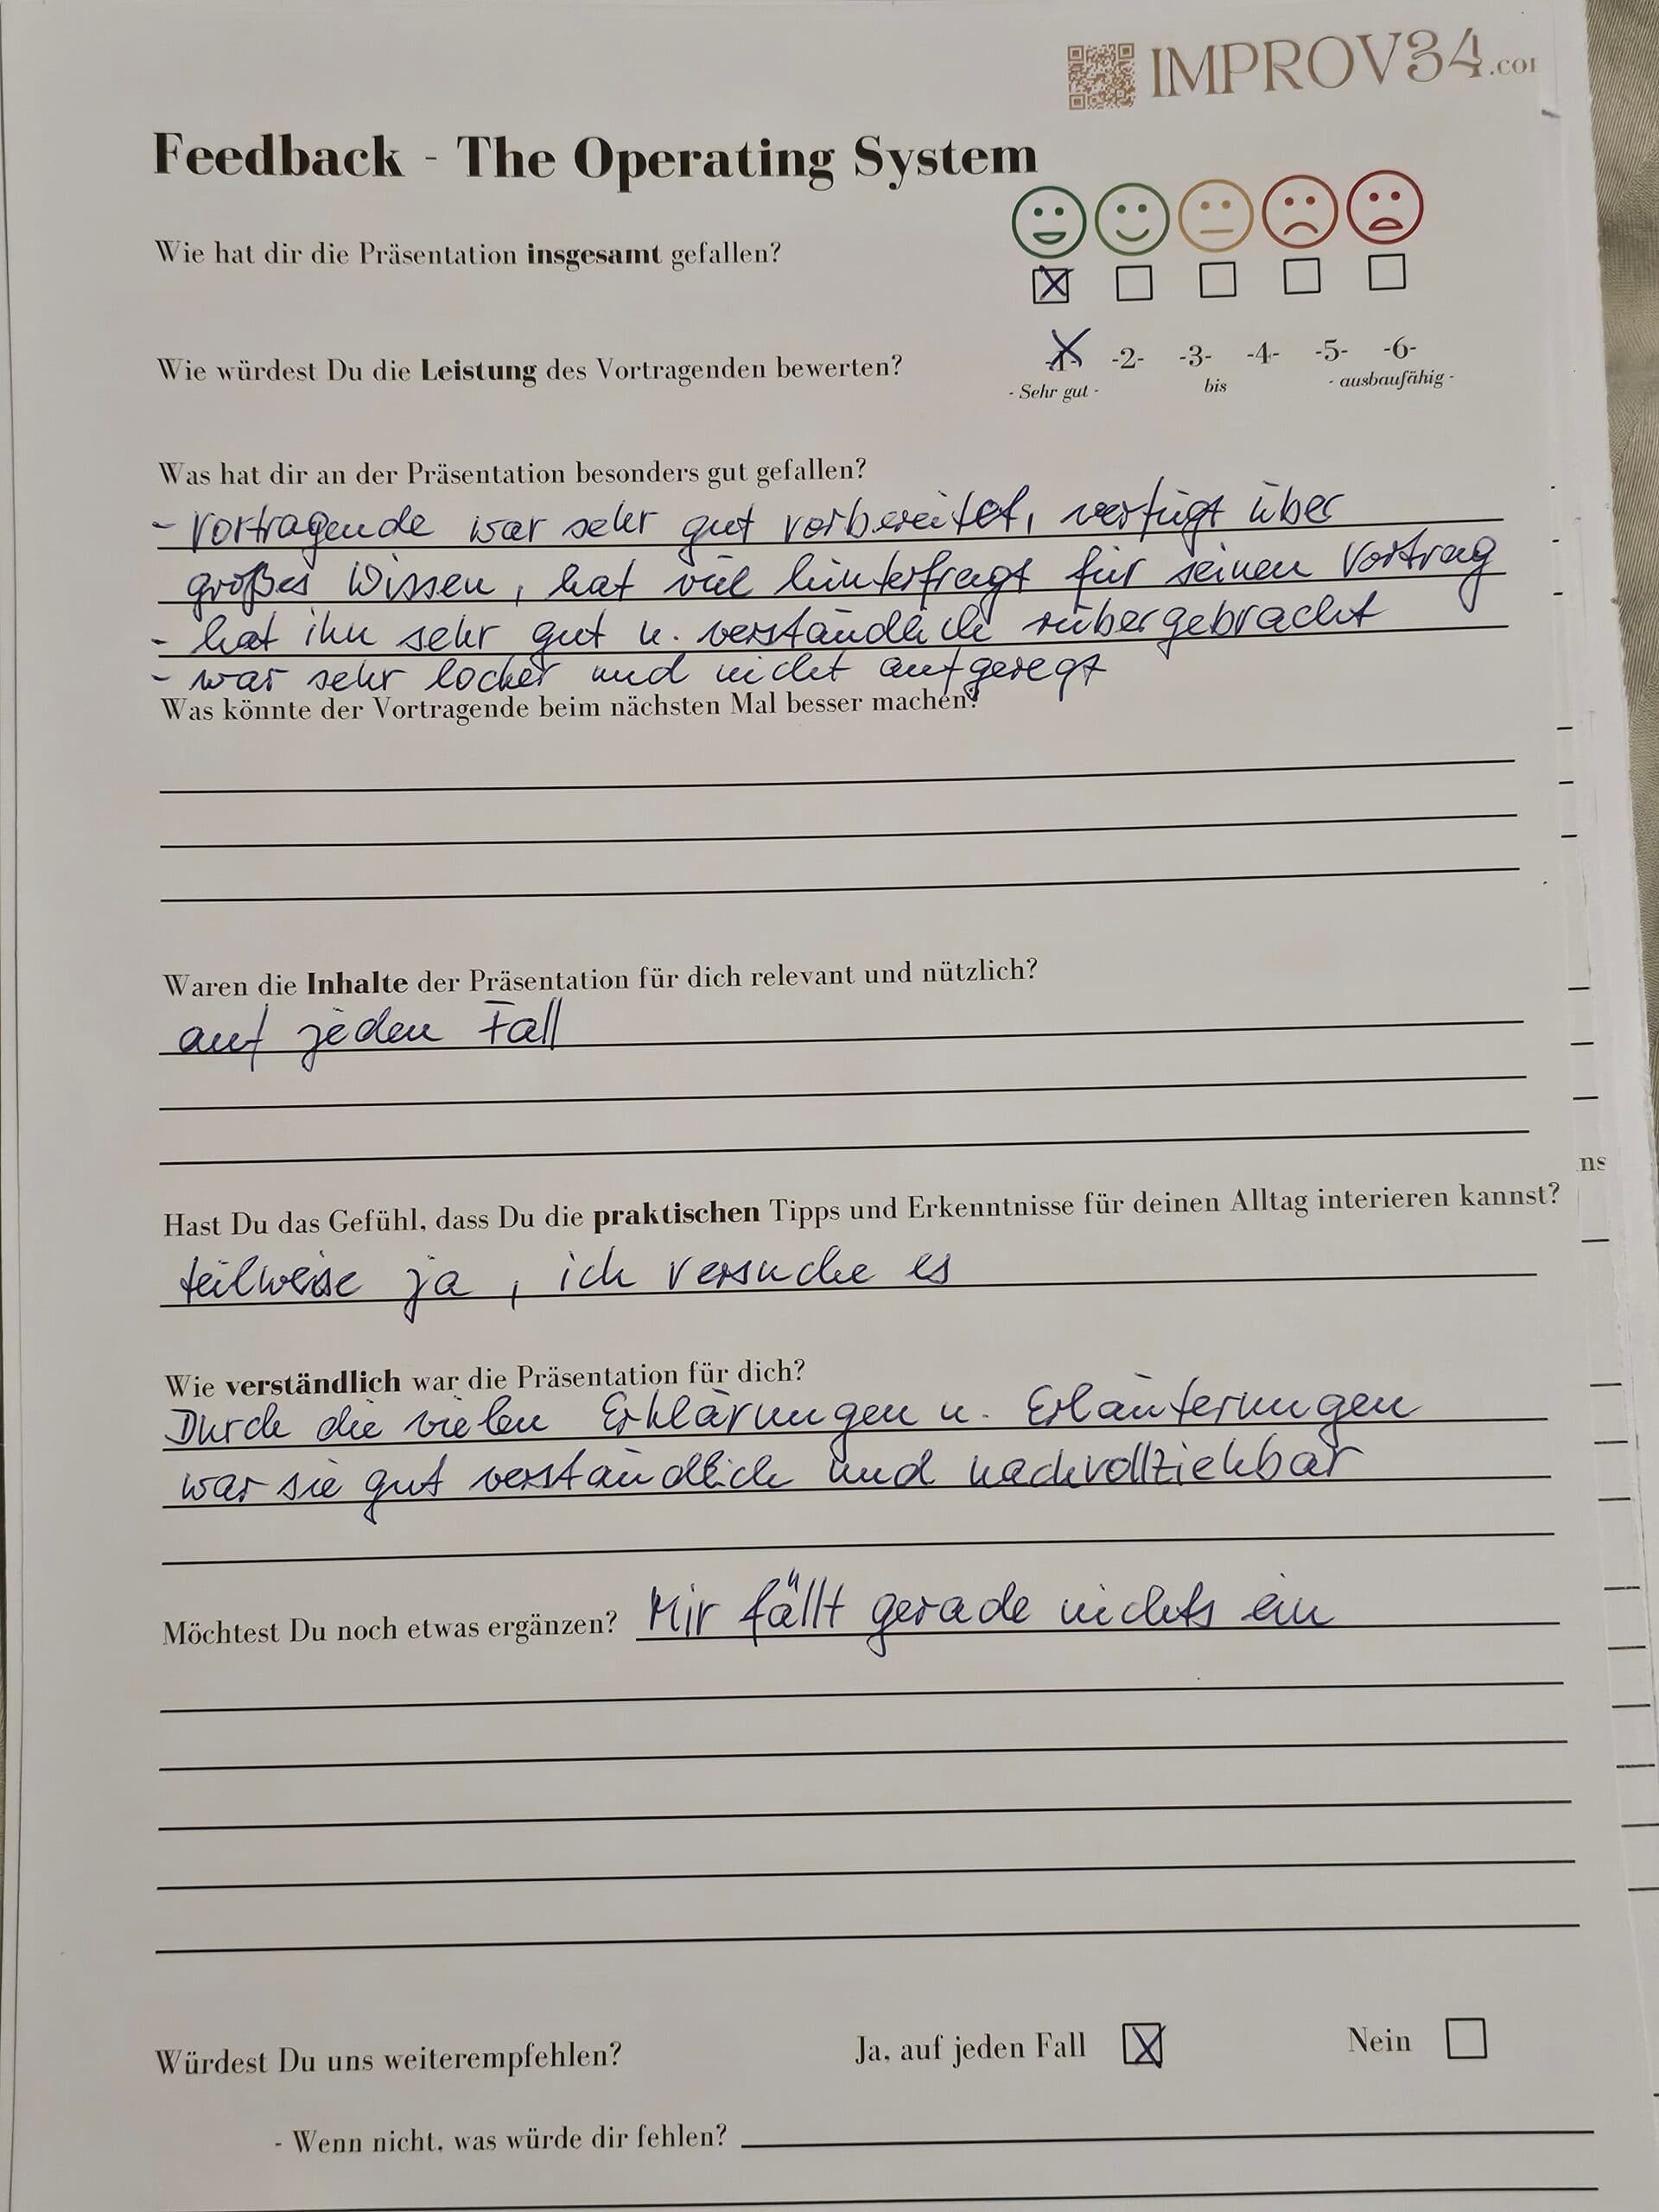 IMPROV34.com
Feedback - The Operating System
Wie hat dir die Präsentation insgesamt gefallen?
Wie würdest Du die Leistung des Vortragenden bewerten? -1- -2- -3- -4- -5- -6-
- Sehr gut - bis - ausbaufähig -
Was hat dir an der Präsentation besonders gut gefallen?
- Vortragende war sehr gut vorbereitet, verfügt über
großes Wissen, hat viel hinterfragt für seinen Vortrag
- hat ihn sehr gut u. verständlich rübergebracht
- war sehr locker und nicht aufgeregt
Was könnte der Vortragende beim nächsten Mal besser machen?
Waren die Inhalte der Präsentation für dich relevant und nützlich?
auf jeden Fall
ns
Hast Du das Gefühl, dass Du die praktischen Tipps und Erkenntnisse für deinen Alltag interieren kannst?
teilweise ja, ich versuche es
Wie verständlich war die Präsentation für dich?
Durch die vielen Erklärungen u. Erläuterungen
war sie gut verständlich und nachvollziehbar
Möchtest Du noch etwas ergänzen? Mir fällt gerade nichts ein
Würdest Du uns weiterempfehlen? Ja, auf jeden Fall Nein
- Wenn nicht, was würde dir fehlen?